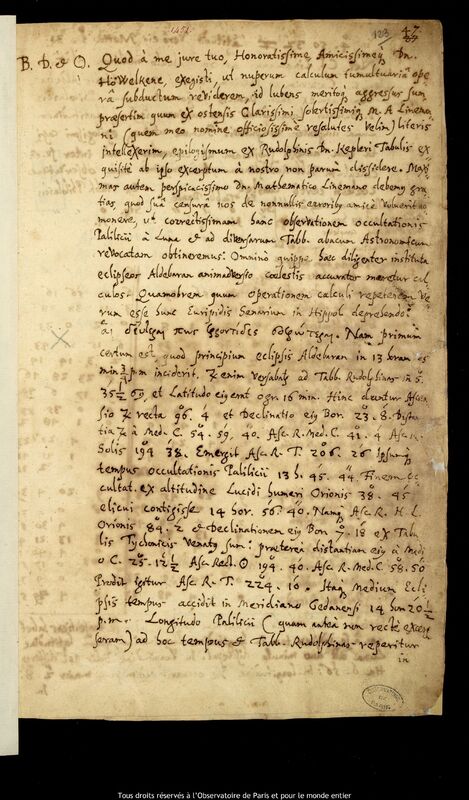 1451.
123
47
B. D. et O. Quod à me jure tuo, Honoratissime, Amicissimeq Dn.
Höwelkene, exegisti, ut nuperum calculum tumultuariâ ope
râ subductum reviderem, id lubens meritoq aggressus sum
præsertim quum ex ostensis Clarissimi solertissimiq M. A. Linema
ni (quem meo nomine officiosissime resalutes velim) literis
intellexerim, epilogismum ex Rudolphinis Dn. Kepleri Tabulis ex
quisitè ab ipso excerptum à nostro non parum dissidere. Maxi
mas autem perspicacissimo Dn. Mathematico Linemano debemq gra
tias, quod suâ censurâ nos de nonnullis erroribq amicè voluerit
monere, ut correctissimam hanc observationem occultationis
Palilicii à Luna et ad diversarum Tabb. abacum Astronomicum
revocatam obtineremus: Omnino quippe hæc diligenter instituta
eclipseos Aldebaran animadversio cœlestis accuratos meretur cal
culos. Quamobrem quum operationem calculi repeterem ve
rum esse hunc Euripidis Senarium in Hippol. deprehendo
Nam primum
certum est, quod principium eclipsis Aldebaran in 13 horam
min p.m inciderit. enim versabatq ad Tabb. Rudolphinas in 5.
35 et Latitudo ejq erat ogr. 16 min. Hinc eruntur Ascen
sio recta 96. 4 et Declinatio ejq Bor. 23. 8. Distan
tia à Med. C. 54. 59, 40. Asc. R. Med. C. 41. 4 Asc. R.
Solis 194 38. Emergit Asc. R. T. 206. 26 ipsumq
tempus occultationis Palilicii 13 h. 45. 44. Finem oc
cultat. ex altitudine Lucidi humeri Orionis 38. 45
elicui contigisse 14 hor. 56. 40. Namq Asc. R. H. L.
Orionis 84. 2 et Declinationem ejq Bor. 7. 18 ex Tabu
lis Tychonicis venatq sum: præterea distantiam ejq à Medi
o C. 25. 12 ½ Asc. Rect. ☉ 194. 40. Asc. R. Med. C 58. 50
Prodit igitur Asc. R. T. 224. 10. Itaq Medium Ecli
psis tempus accidit in Meridiano Gedanensi 14 hor 20 ½
p.m. Longitudo Palilicii (quam antea non rectè excerp
seram) ad hoc tempus et Tabb. Rudolphinas reperitur
in
OBSERVATOIRE DE PARIS
Tous droits réservés à l'Observatoire de Paris et pour le monde entier